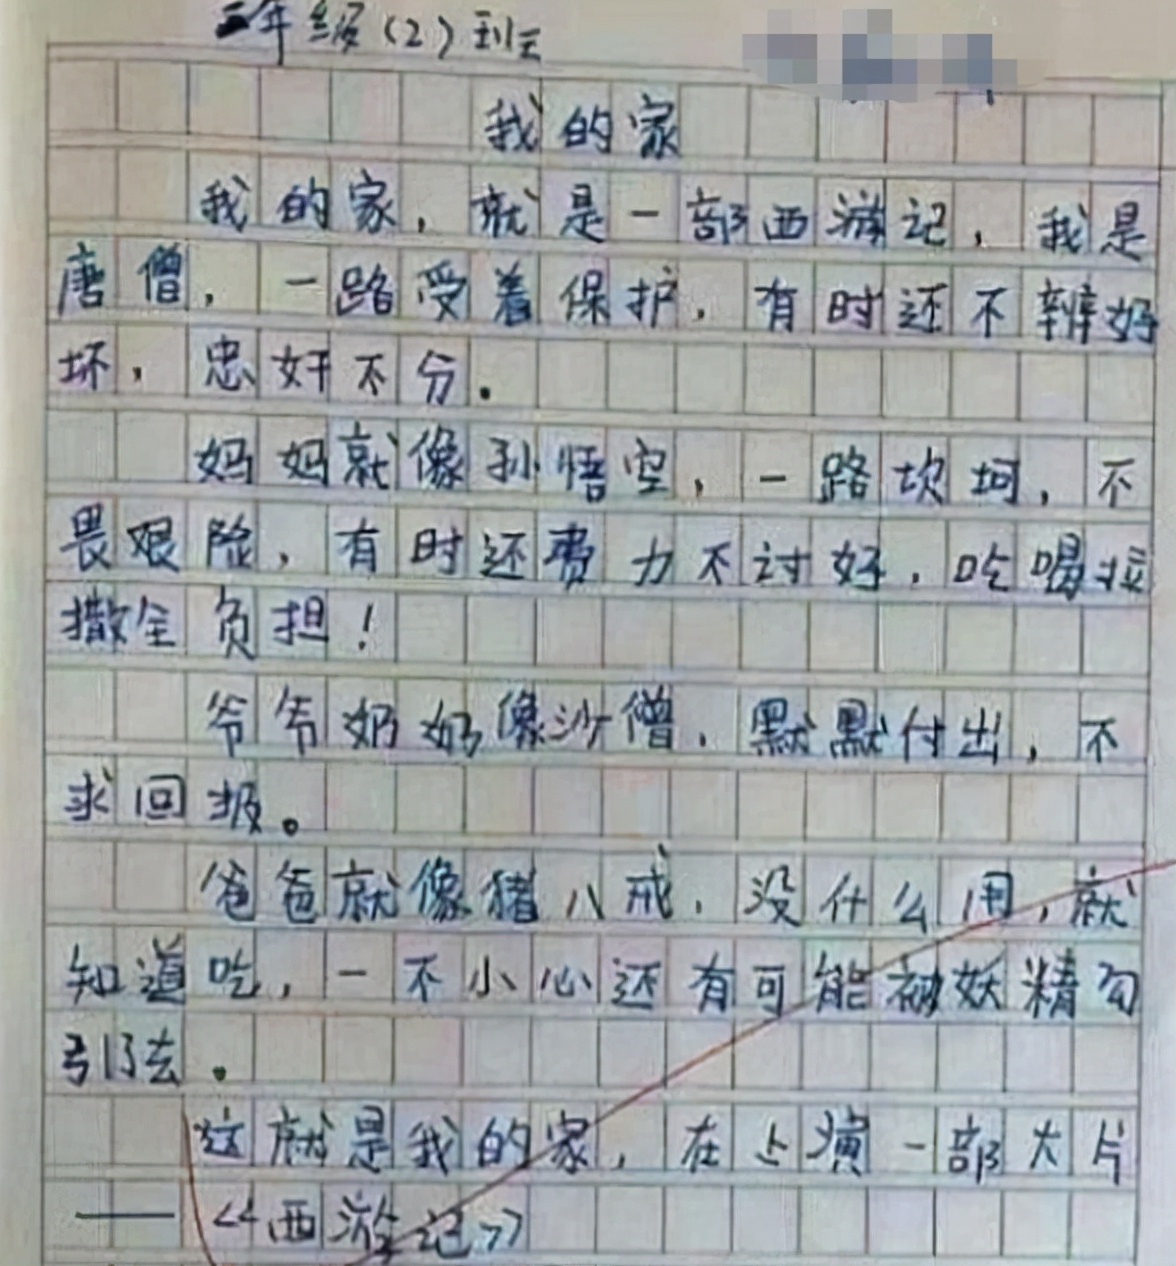 二年级(2)班
我的家
我的家，就是一部西游记，我是
唐僧，一路受着保护，有时还不辨好
坏，忠奸不分。
妈妈就像孙悟空，一路坎坷，不
畏艰险，有时还费力不讨好，吃喝拉
撒全负担！
爷爷奶奶像沙僧，默默付出，不
求回报。
爸爸就像猪八戒，没什么用，就
知道吃，一不小心还有可能被妖精勾
引了去。
这就是我的家，在上演一部大片
——《西游记》